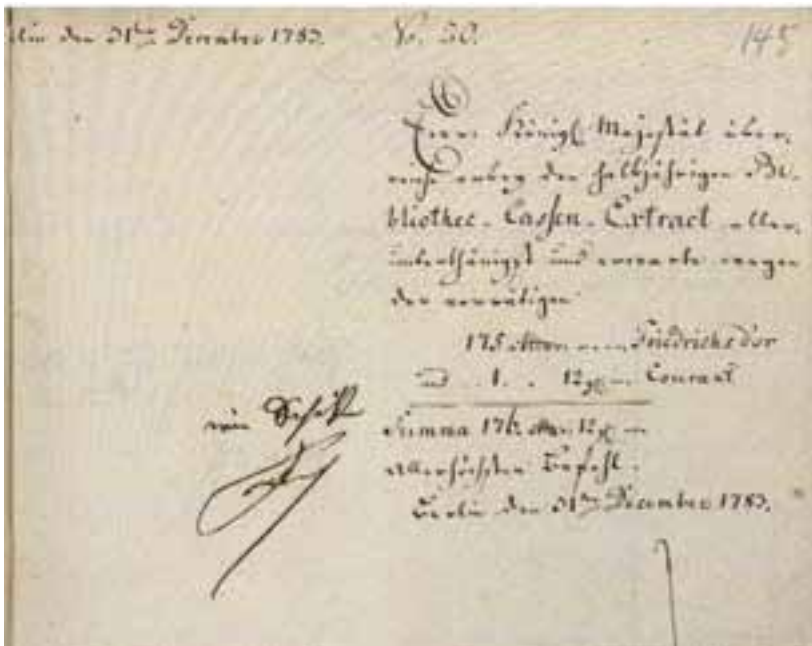 lin den 31ten December 1783.
No. 50.
145
Euer Königl. Majestät über-
reiche anbey den halbjährigen Bi-
bliothec-Cassen-Extract aller-
unterthänigst und erwarte wegen
der vorrätigen
175 in Friedrichsdor
und 1. " 12 gr. in Courant
Summa 176. 12 gr.
Allerhöchsten Befehl.
Berlin den 31ten December 1783.